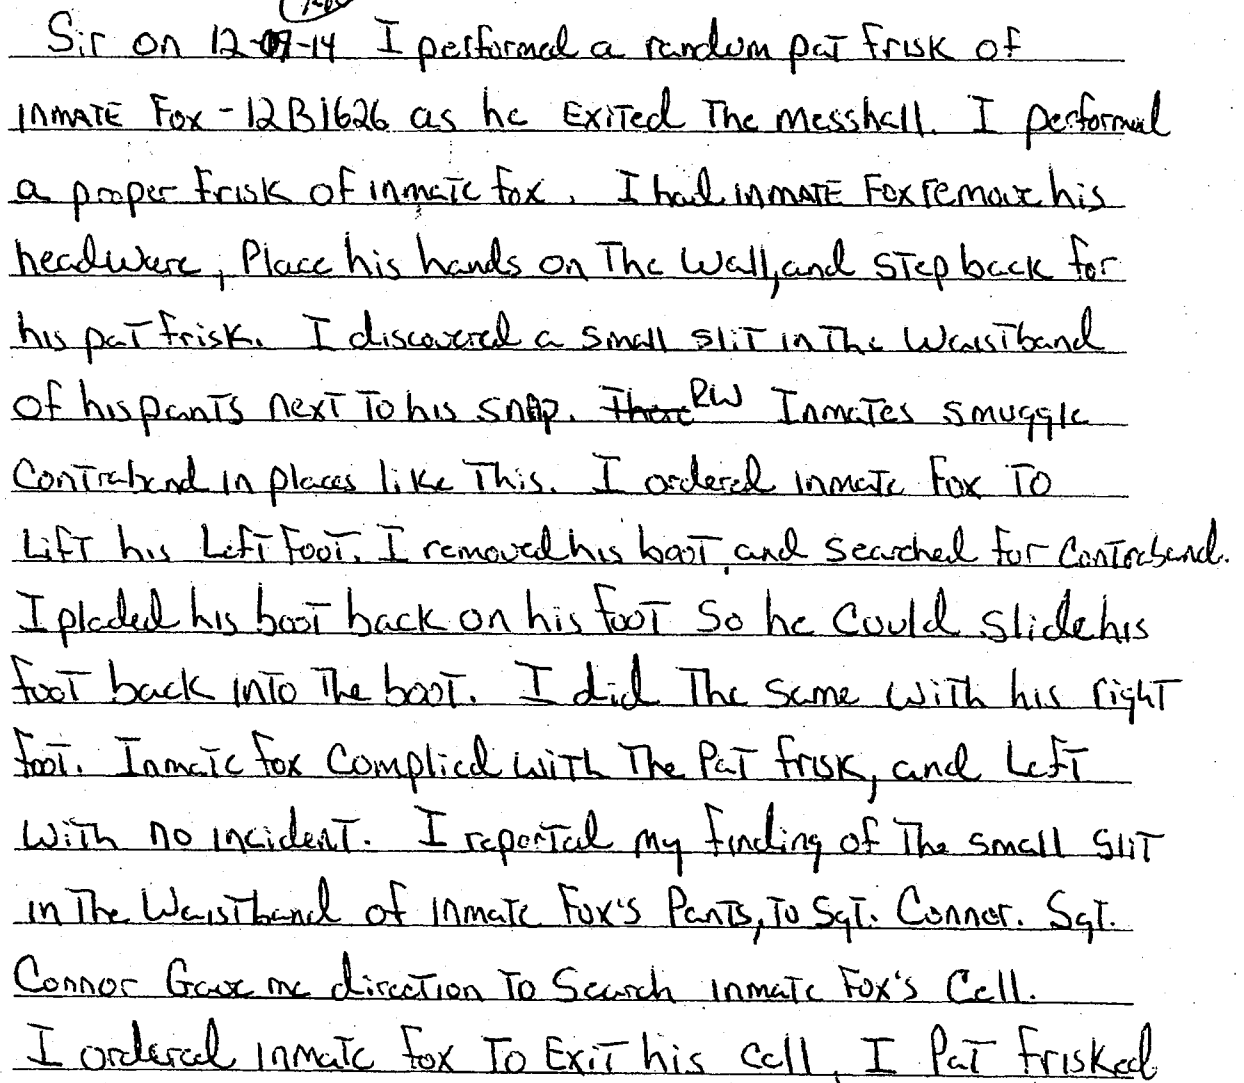 Sir on 12-07-14 I performed a random pat frisk of
inmate Fox - 12B1626 as he Exited The Messhall. I performed
a proper Frisk of inmate Fox. I had inmate Fox remove his
headwere, Place his hands on The Wall, and step back for
his pat frisk. I discovered a small slit in The Waistband
of his pants next To his snap. There RW Inmates smuggle
Contraband in places like This. I ordered inmate Fox To
Lift his Left Foot. I removed his boot, and searched for Contraband.
I pladed his boot back on his foot So he Could slide his
foot back into The boot. I did The same with his right
foot. Inmate Fox Complied with The Pat frisk, and Left
with no incident. I reported my finding of The small slit
in The Waistband of inmate Fox's Pants, To Sgt. Connor. Sgt.
Connor Gave me direction To Search inmate Fox's Cell.
I ordered inmate Fox To Exit his cell, I Pat frisked